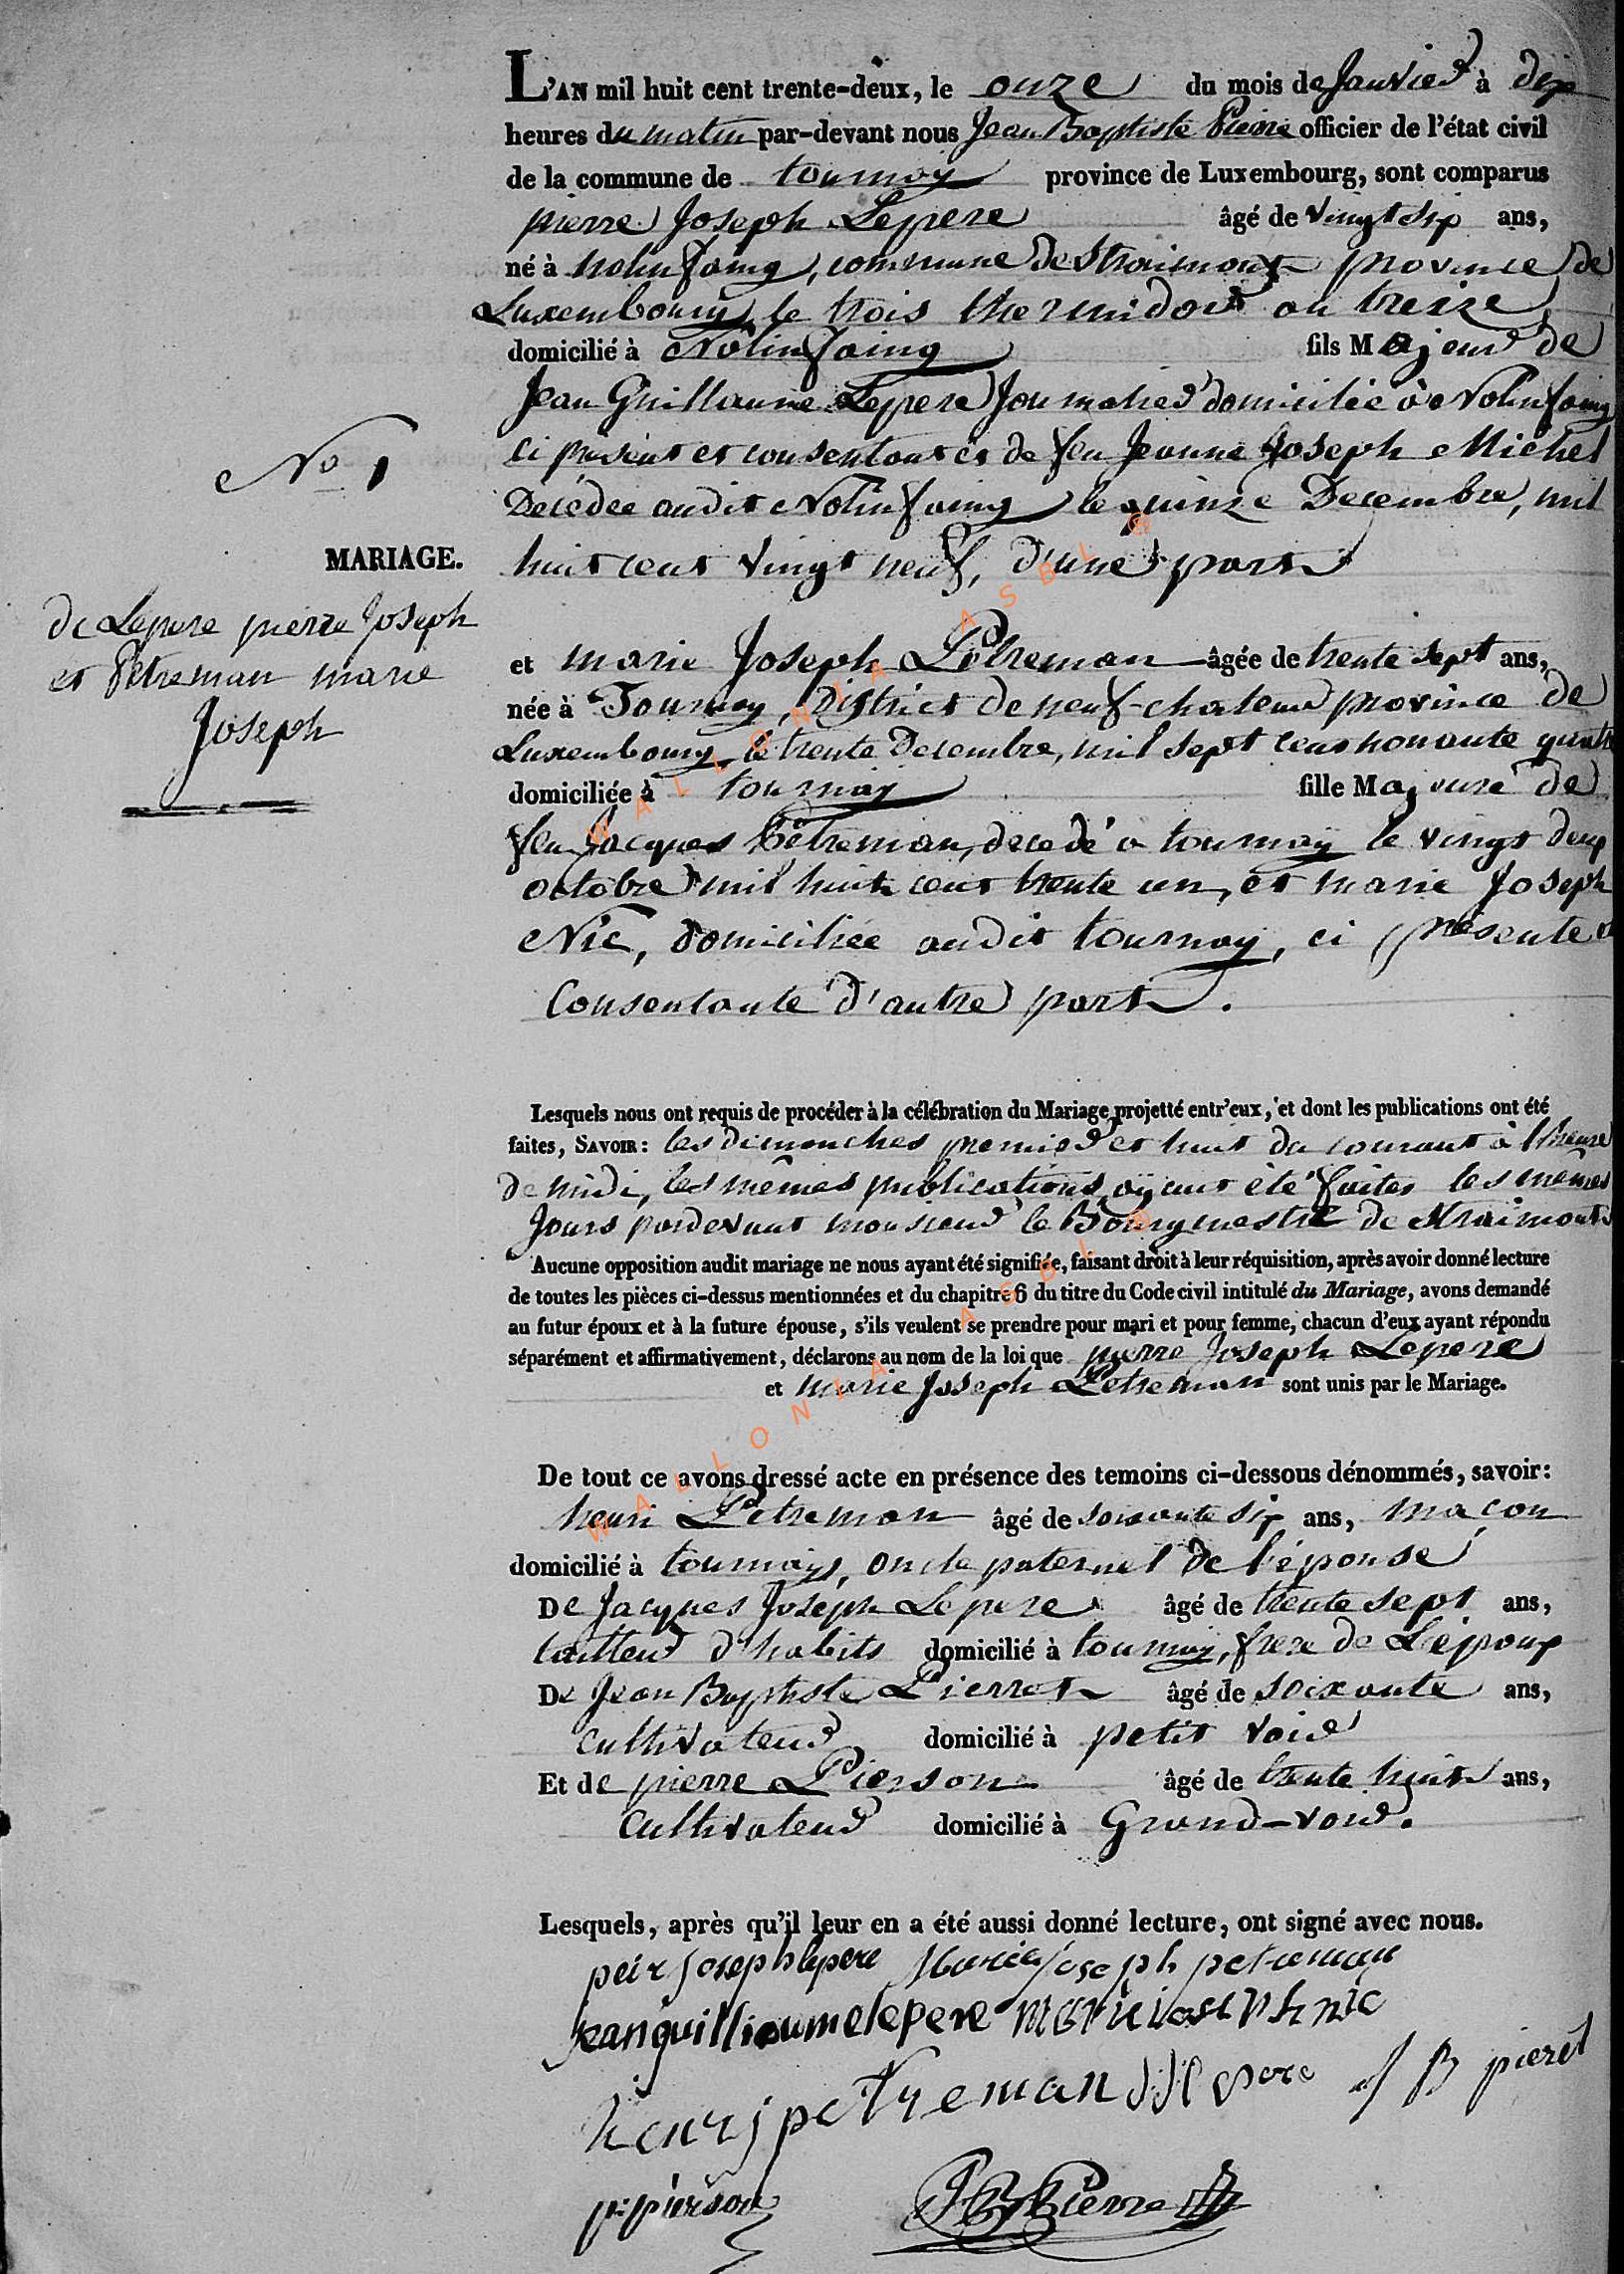 L'AN mil huit cent trente-deux, le onze du mois de Janvier à dix
heures du matin par-devant nous Jean Baptiste Pierre officier de l'état civil
de la commune de tournay province de Luxembourg, sont comparus
pierre Joseph Lepere âgé de vingt six ans,
né à nolinfaing, commune de Straimont province de
Luxembourg, le trois thermidor an treize
domicilié à Nolinfaing fils Majeur de
Jean Guillaume Lepere Journalier domicilié à Nolinfaing
ci présent et consentant et de feu Jeanne Joseph Michel
Decedee audit Nolinfaing le quinze Decembre, mil
huit cent vingt neuf, d'une part
No 1
MARIAGE.
de Lepere pierre Joseph
et Petreman marie
Joseph
et marie Joseph Petreman âgée de trente sept ans,
née à Tournay, District de neuf-chateau province de
Luxembourg, le trente Decembre, mil sept cent nonante quatre
domiciliée à tournay fille Majeure de
feu Jacques Pêtreman, decedé à tournay le vingt deux
octobre mil huit cent trente un, et marie Joseph
Nic, domiciliée audit tournay, ci présente et
Consentante d'autre part.
Lesquels nous ont requis de procéder à la célébration du Mariage projetté entr'eux, et dont les publications ont été
faites, SAVOIR: les dimanches premier et huit du courant à l'heure
de midi, les mêmes publications ayant été faites les mêmes
Jours pardevant monsieur le Bourgmestre de Straimont
Aucune opposition audit mariage ne nous ayant été signifiée, faisant droit à leur réquisition, après avoir donné lecture
de toutes les pièces ci-dessus mentionnées et du chapitre 6 du titre du Code civil intitulé du Mariage, avons demandé
au futur époux et à la future épouse, s'ils veulent se prendre pour mari et pour femme, chacun d'eux ayant répondu
séparément et affirmativement, déclarons au nom de la loi que pierre Joseph Lepere
et marie Joseph Petreman sont unis par le Mariage.
De tout ce avons dressé acte en présence des temoins ci-dessous dénommés, savoir:
henri Petreman âgé de soixante six ans, maçon
domicilié à tournay, oncle paternel de l'épouse
De Jacques Joseph Lepere âgé de trente sept ans,
tailleur d'habits domicilié à tournay, frere de L'époux
De Jean Baptiste Pierret âgé de soixante ans,
cultivateur domicilié à petit voir
Et de pierre Pierson âgé de trente huit ans,
Cultivateur domicilié à Grand-voir.
Lesquels, après qu'il leur en a été aussi donné lecture, ont signé avec nous.
peir Joseph lepere Marie Joseph petreman
Jean guillioume lepere Marie Joseph nic
henrj petreman JJ lepere J B pieret
p:pierson JB Pierre
WALLONIA ASBL ©
WALLONIA ASBL ©